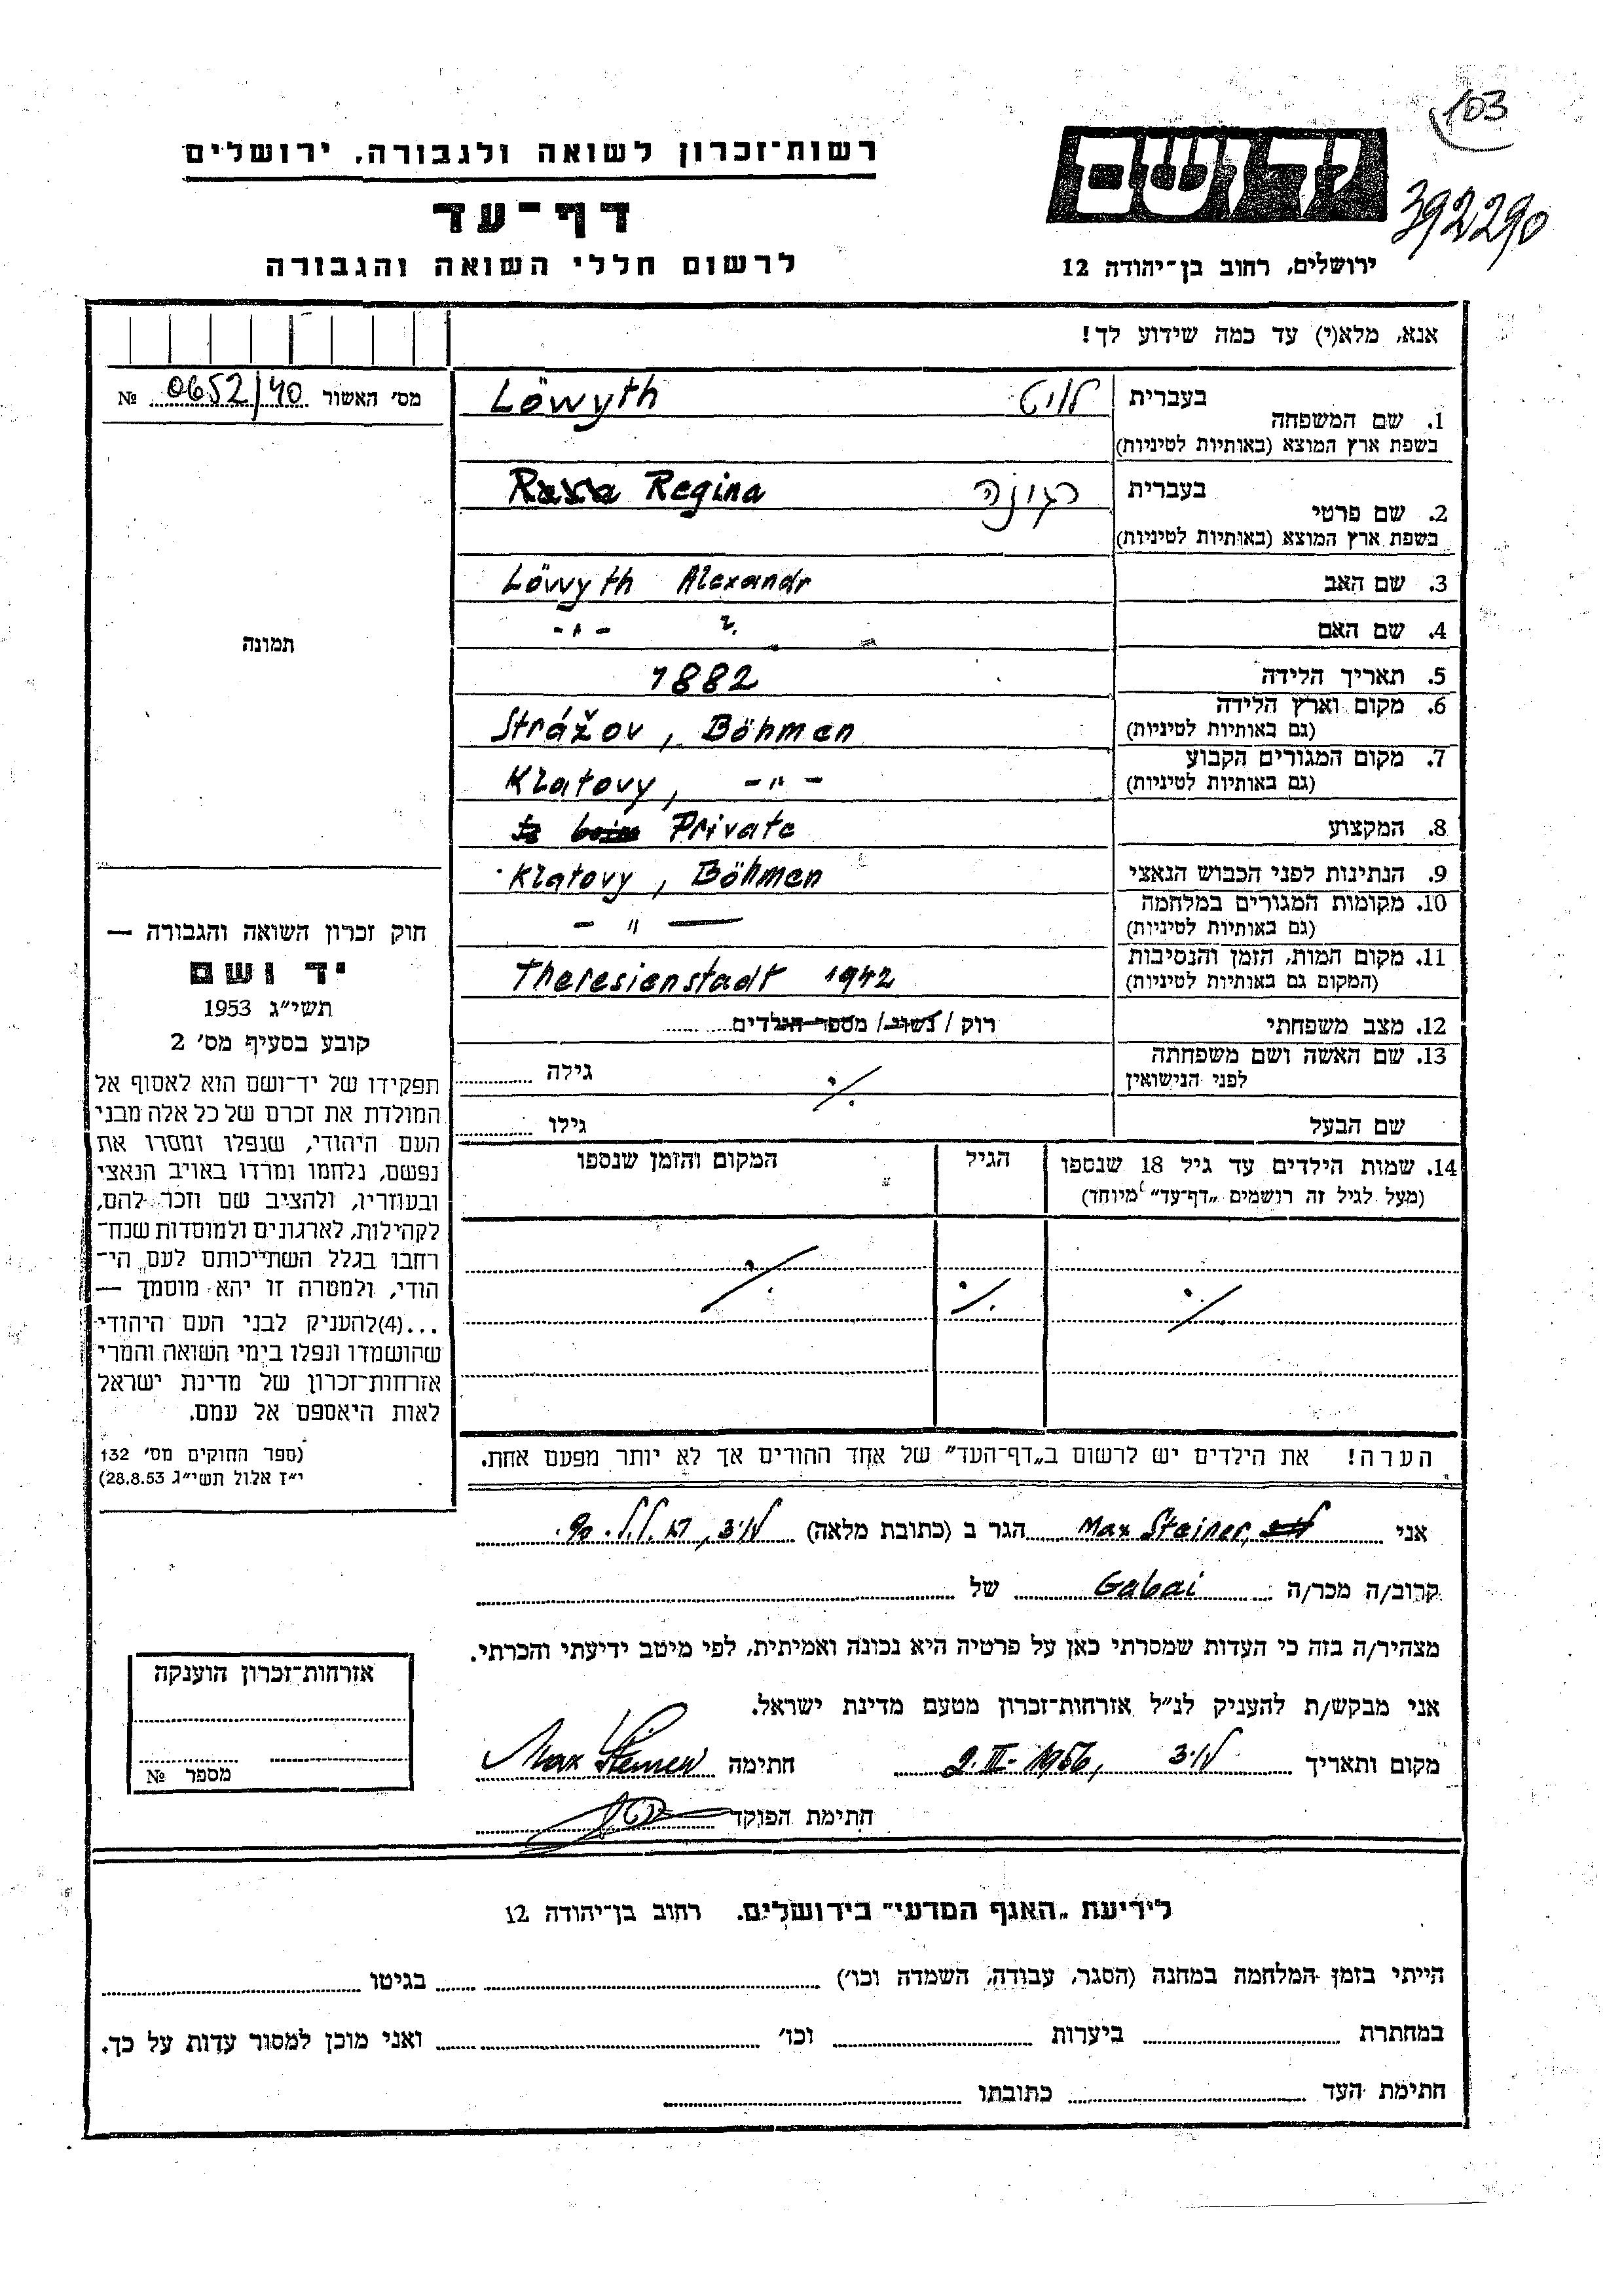 103
רשות-זכרון לשואה ולגבורה, ירושלים
יד ושם
392290
דף-עד
לרשום חללי השואה והגבורה
ירושלים, רחוב בן-יהודה 12
אנא, מלא(י) עד כמה שידוע לך!
מס' האשור 0652/40 №
תמונה
חוק זכרון השואה והגבורה —
יד ושם
תשי"ג 1953
קובע בסעיף מס' 2
תפקידו של יד-ושם הוא לאסוף אל
המולדת את זכרם של כל אלה מבני
העם היהודי, שנפלו ומסרו את
נפשם, נלחמו ומרדו באויב הנאצי
ובעוזריו, ולהציב שם וזכר להם,
לקהילות, לארגונים ולמוסדות שנח-
רחבו בגלל השתייכותם לעם הי-
הודי, ולמטרה זו יהא מוסמך —
...(4)להעניק לבני העם היהודי
שהושמדו ונפלו בימי השואה והמרי
אזרחות-זכרון של מדינת ישראל
לאות היאספם אל עמם.
(ספר החוקים מס' 132
י"ז אלול תשי"ג 28.8.53)
בעברית לויט Löwyth
1. שם המשפחה
בשפת ארץ המוצא (באותיות לטיניות)
בעברית רגינה Regina
2. שם פרטי
בשפת ארץ המוצא (באותיות לטיניות)
3. שם האב Löwyth Alexandr
4. שם האם -"- ?
5. תאריך הלידה 1882
6. מקום וארץ הלידה Strážov, Böhmen
(גם באותיות לטיניות)
7. מקום המגורים הקבוע Klatovy, -"-
(גם באותיות לטיניות)
8. המקצוע Private
9. הנתינות לפני הכבוש הנאצי Klatovy, Böhmen
10. מקומות המגורים במלחמה -"-
(גם באותיות לטיניות)
11. מקום המות, הזמן והנסיבות Theresienstadt 1942
(המקום גם באותיות לטיניות)
12. מצב משפחתי רוק / נשוי / מספר הילדים
13. שם האשה ושם משפחתה גילה
לפני הנישואין ./.
שם הבעל גילו
14. שמות הילדים עד גיל 18 שנספו הגיל המקום והזמן שנספו
(מעל לגיל זה רושמים „דף-עד" מיוחד)
./. ./. ./.
הערה! את הילדים יש לרשום ב„דף-העד" של אחד ההורים אך לא יותר מפעם אחת.
אני Max Steiner, הגר ב (כתובת מלאה)
קרוב/ה מכר/ה Gabai של
מצהיר/ה בזה כי העדות שמסרתי כאן על פרטיה היא נכונה ואמיתית, לפי מיטב ידיעתי והכרתי.
אני מבקש/ת להעניק לנ"ל אזרחות-זכרון מטעם מדינת ישראל.
מקום ותאריך 2.II-1956, חתימה Max Steiner
חתימת הפוקד
אזרחות-זכרון הוענקה
מספר №
לידיעת „האגף המדעי" בירושלים. רחוב בן-יהודה 12
הייתי בזמן המלחמה במחנה (הסגר, עבודה, השמדה וכו') בגיטו
במחתרת ביערות וכו' ואני מוכן למסור עדות על כך.
חתימת העד כתובתו